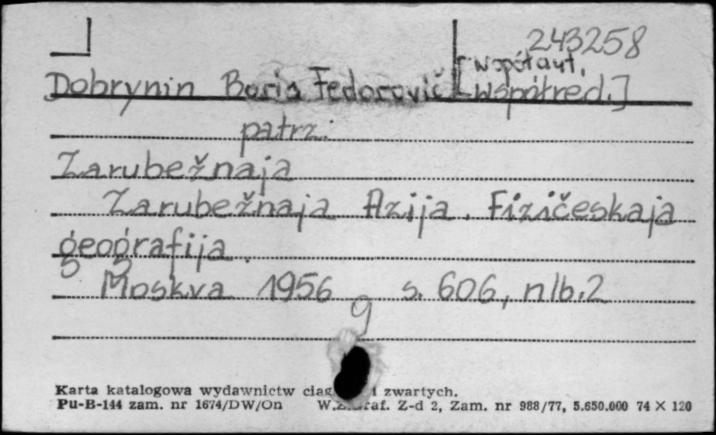 243258
[współaut.,
Dobrynin Boris Fedorovič współred.]
patrz:
Zarubežnaja
Zarubežnaja Azija. Fizičeskaja
geografija.
Moskva 1956 s. 606, nlb. 2
g
Karta katalogowa wydawnictw ciąg i zwartych.
Pu-B-144 zam. nr 1674/DW/On W.Z.Graf. Z-d 2, Zam. nr 988/77, 5.650.000 74 X 120